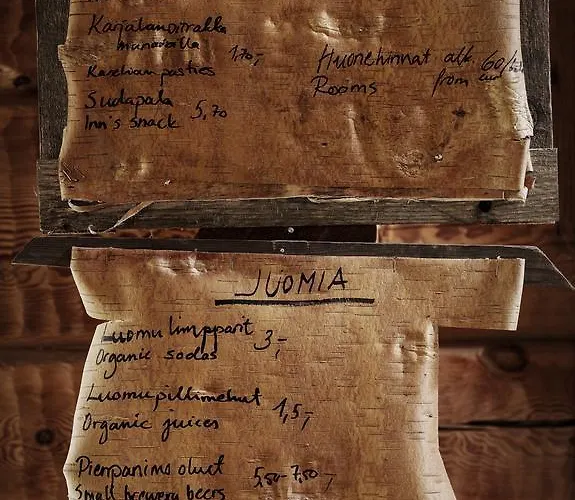 Karjalanpiirakka
munavoilla 1,70,-
Karelian pasties
Sudapala
Inn's snack 5,70
Huonehinnat alk. 60/
Rooms from eur
JUOMIA
Luomu limpparit
Organic sodas 3,-
Luomupillimehut
Organic juices 1,5,-
Pienpanimo oluet
Small brewery beers 5,50-7,50,-